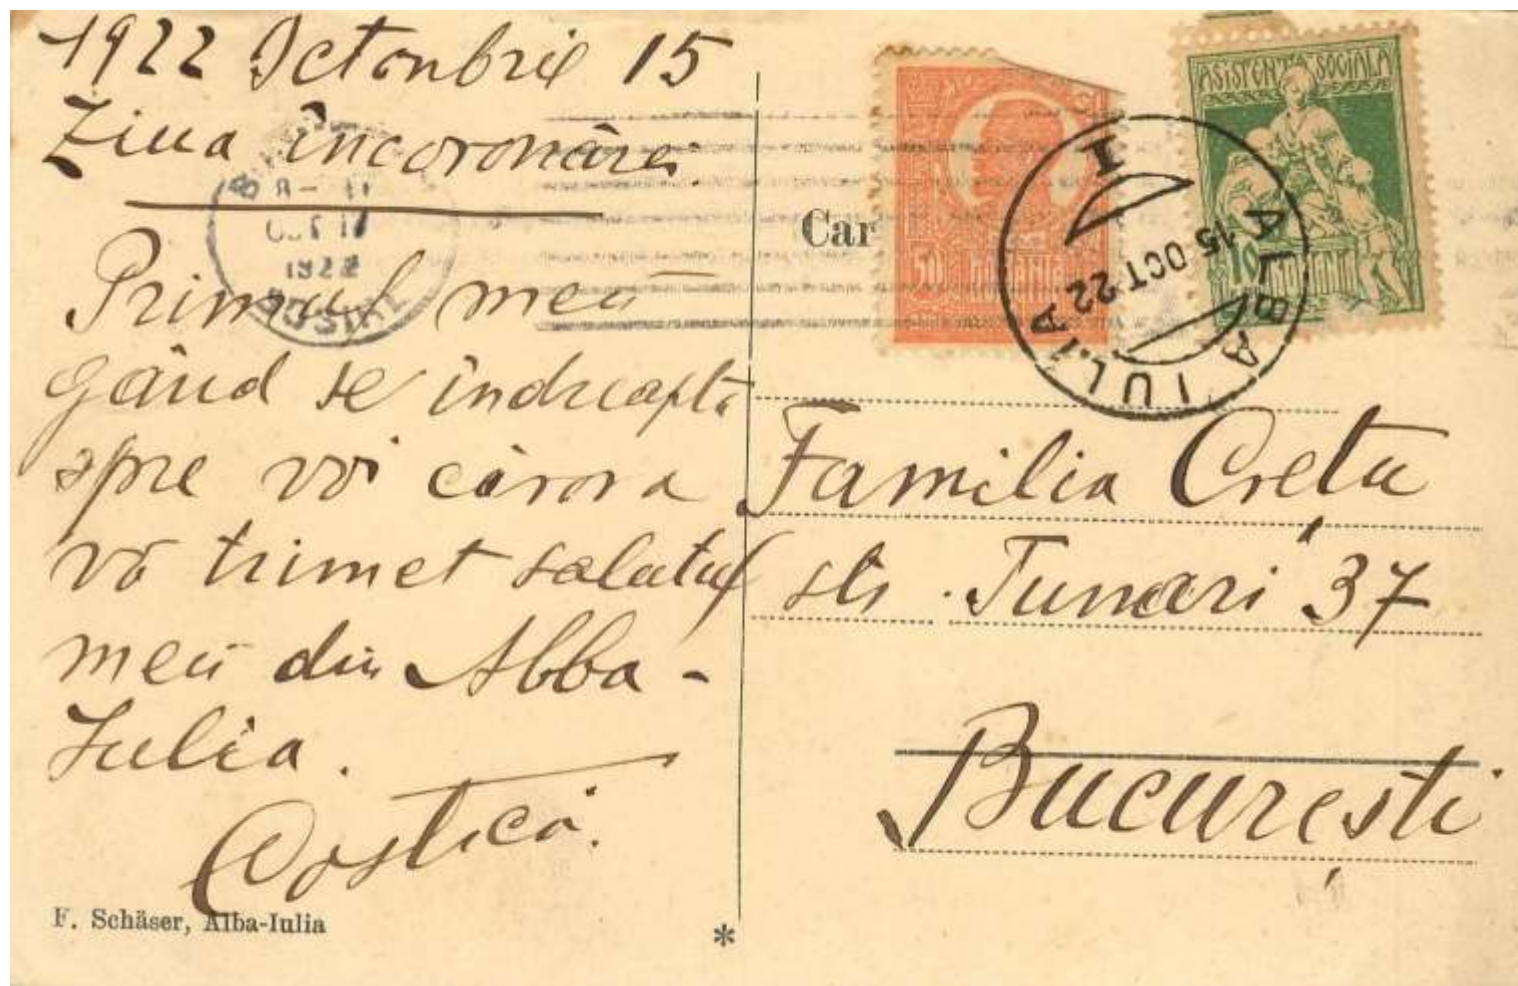 1922 Octonbrie 15
Ziua încoronărei
Primul meŭ
gând se îndreaptă
spre voi cărora
vă trimet salutul
meŭ din Abba-
Iulia.
Costică.
F. Schäser, Alba-Iulia
*
8- 11
OCT 17
1922
Car
50 ROMANIA
ASISTENȚA SOCIALA
10
ALBA IULIA
15 OCT 22
Familia Crețu
str. Tunari 37
București